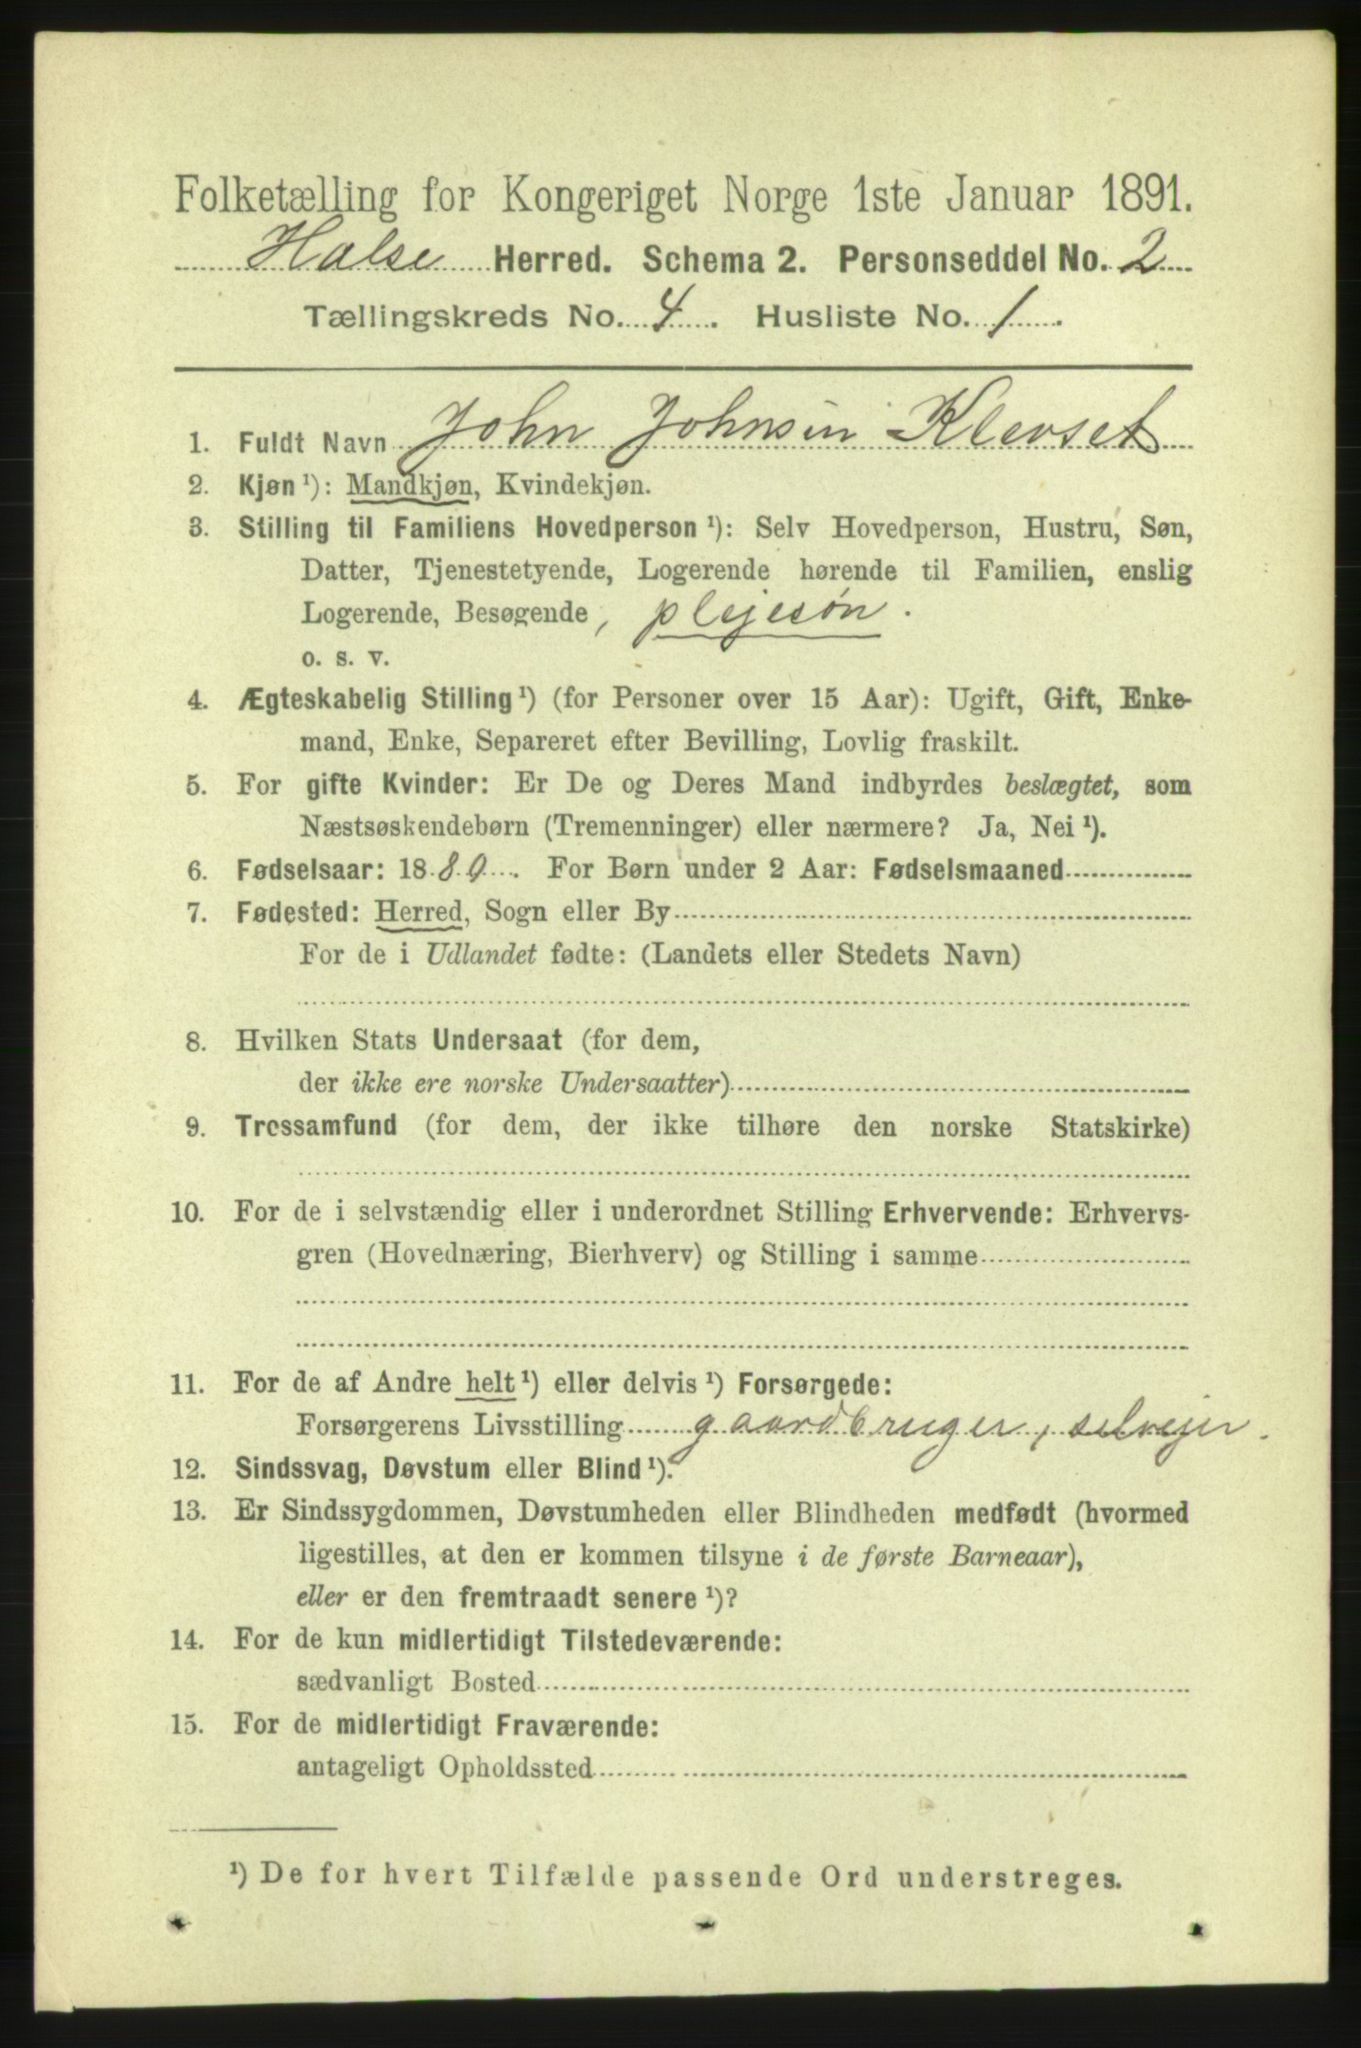 Folketælling for Kongeriget Norge 1ste Januar 1891.
Halse Herred. Schema 2. Personseddel No. 2
Tællingskreds No. 4. Husliste No. 1.
1. Fuldt Navn John Johnsen Klevset
2. Kjøn ¹): Mandkjøn, Kvindekjøn.
3. Stilling til Familiens Hovedperson ¹): Selv Hovedperson, Hustru, Søn,
Datter, Tjenestetyende, Logerende hørende til Familien, enslig
Logerende, Besøgende, plejesøn.
o. s. v.
4. Ægteskabelig Stilling ¹) (for Personer over 15 Aar): Ugift, Gift, Enke-
mand, Enke, Separeret efter Bevilling, Lovlig fraskilt.
5. For gifte Kvinder: Er De og Deres Mand indbyrdes beslægtet, som
Næstsøskendebørn (Tremenninger) eller nærmere? Ja, Nei ¹).
6. Fødselsaar: 1880. For Børn under 2 Aar: Fødselsmaaned
7. Fødested: Herred, Sogn eller By
For de i Udlandet fødte: (Landets eller Stedets Navn)
8. Hvilken Stats Undersaat (for dem,
der ikke ere norske Undersaatter)
9. Trossamfund (for dem, der ikke tilhøre den norske Statskirke)
10. For de i selvstændig eller i underordnet Stilling Erhvervende: Erhvervs-
gren (Hovednæring, Bierhverv) og Stilling i samme
11. For de af Andre helt ¹) eller delvis ¹) Forsørgede:
Forsørgerens Livsstilling gaardbruger, selvejer.
12. Sindssvag, Døvstum eller Blind ¹).
13. Er Sindssygdommen, Døvstumheden eller Blindheden medfødt (hvormed
ligestilles, at den er kommen tilsyne i de første Barneaar),
eller er den fremtraadt senere ¹)?
14. For de kun midlertidigt Tilstedeværende:
sædvanligt Bosted
15. For de midlertidigt Fraværende:
antageligt Opholdssted
¹) De for hvert Tilfælde passende Ord understreges.